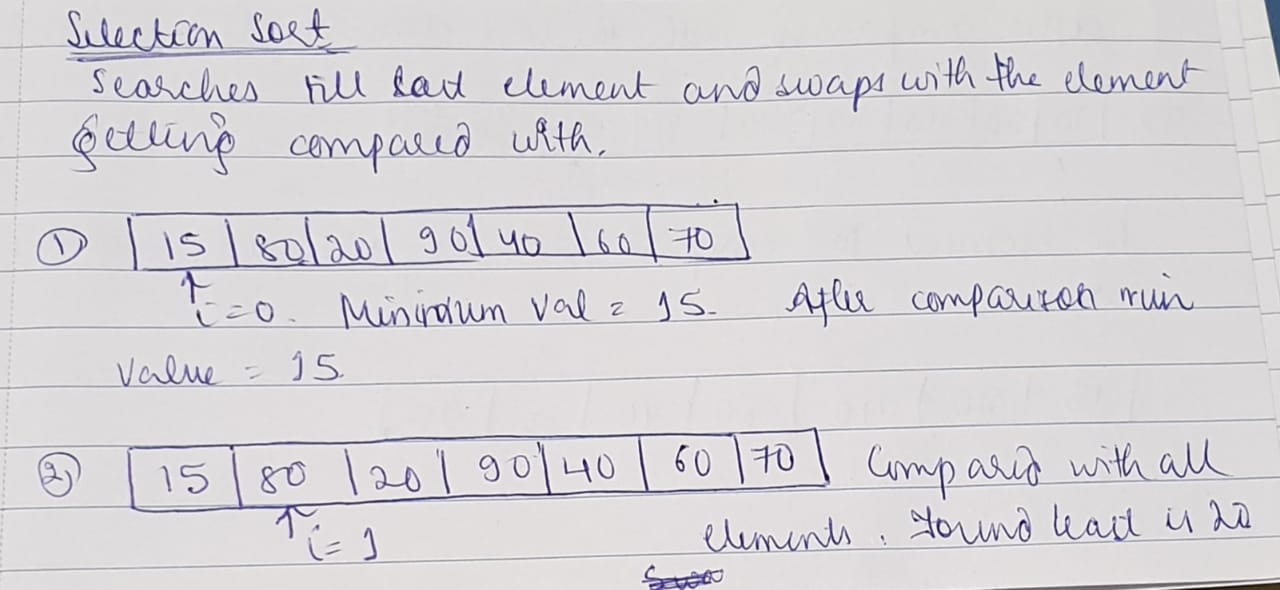 Selection Sort
Searches till last element and swaps with the element
getting compared with.
① 15 | 80 | 20 | 90 | 40 | 60 | 70
i=0. Minimum Val = 15. After comparison min
Value = 15.
② 15 | 80 | 20 | 90 | 40 | 60 | 70 Compared with all
i=1 elements. Found least is 20